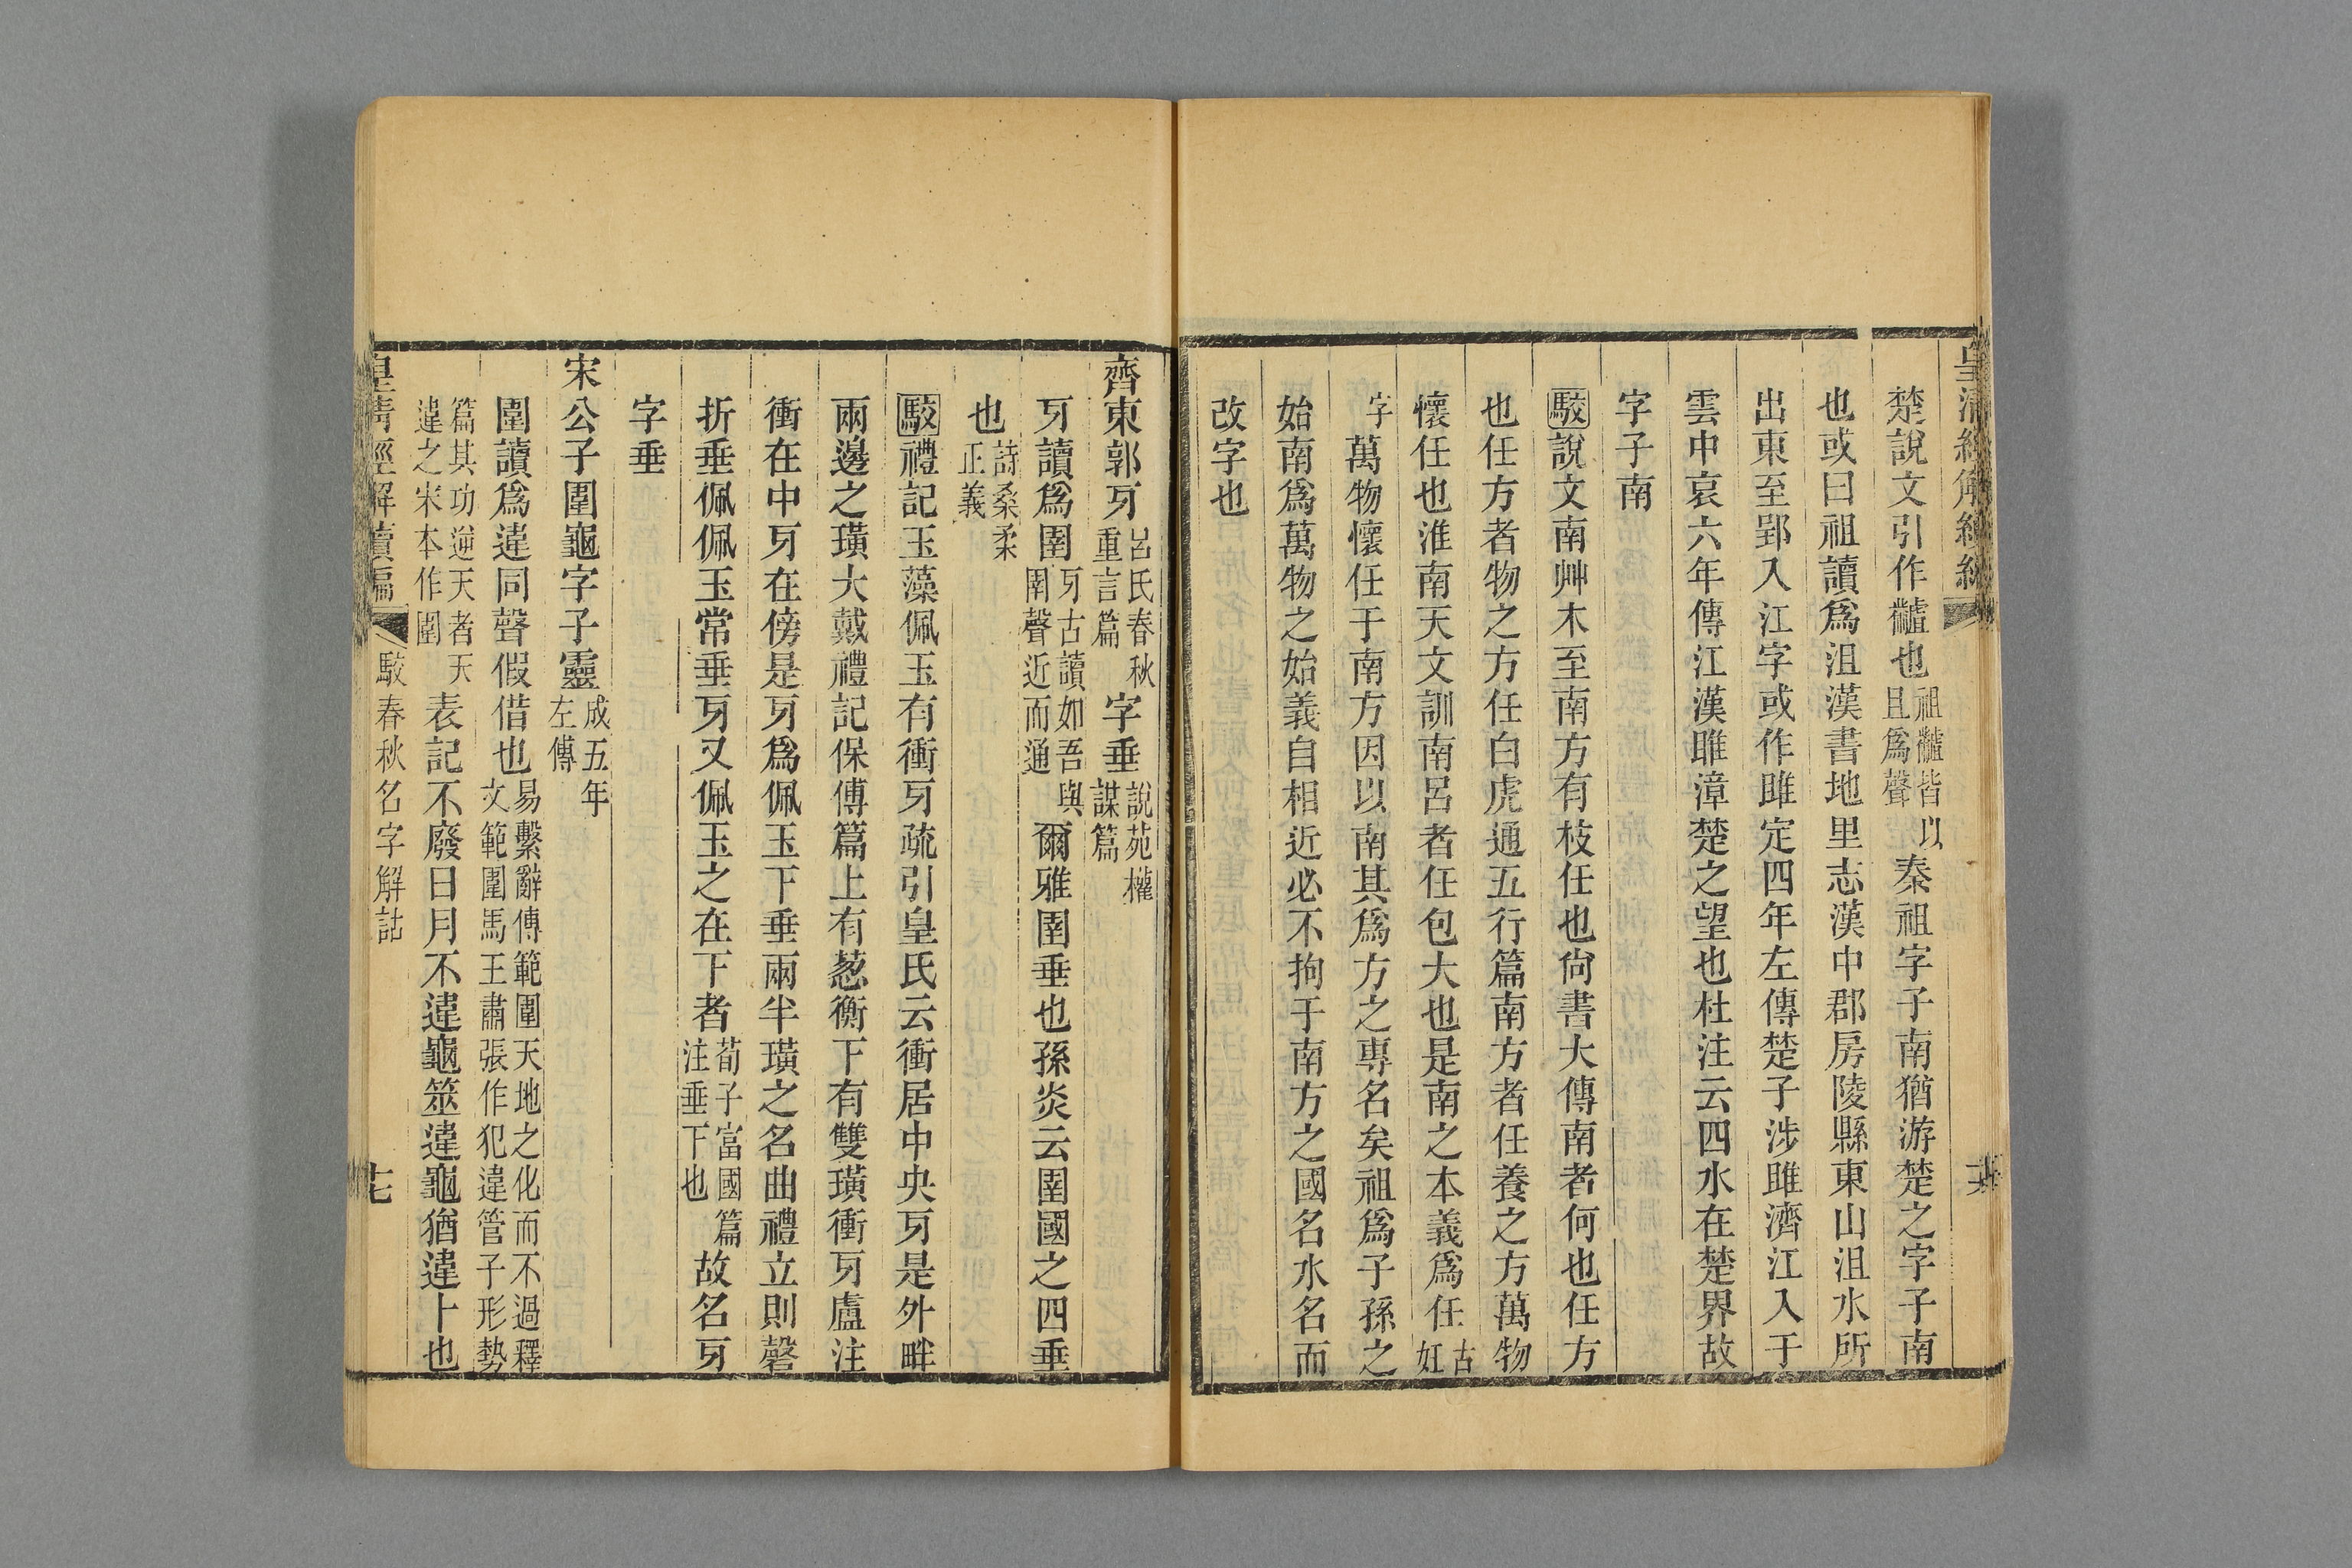 皇清經解續編
楚說文引作䶥也祖䶥皆以且爲聲秦祖字子南猶游楚之字子南
也或曰祖讀爲沮漢書地里志漢中郡房陵縣東山沮水所
出東至郢入江字或作雎定四年左傳楚子涉雎濟江入于
雲中哀六年傳江漢雎漳楚之望也杜注云四水在楚界故
字子南
駮說文南艸木至南方有枝任也尙書大傳南者何也任方
也任方者物之方任白虎通五行篇南方者任養之方萬物
懷任也淮南天文訓南呂者任包大也是南之本義爲任古妊
字萬物懷任于南方因以南其爲方之專名矣祖爲子孫之
始南爲萬物之始義自相近必不拘于南方之國名水名而
改字也
齊東郭牙呂氏春秋重言篇字垂說苑權謀篇
牙讀爲圉牙古讀如吾與圉聲近而通爾雅圉垂也孫炎云圉國之四垂
也詩桑柔正義
駮禮記玉藻佩玉有衝牙疏引皇氏云衝居中央牙是外畔
兩邊之璜大戴禮記保傅篇上有蔥衡下有雙璜衝牙盧注
衝在中牙在傍是牙爲佩玉下垂兩半璜之名曲禮立則磬
折垂佩佩玉常垂牙又佩玉之在下者荀子富國篇注垂下也故名牙
字垂
宋公子圍龜字子靈成五年左傳
圍讀爲違同聲假借也易繫辭傳範圍天地之化而不過釋文範圍馬王肅張作犯違管子形勢
篇其功逆天者天違之宋本作圍表記不廢日月不違龜筮違龜猶違卜也
皇淸經解續編 駮春秋名字解詁 十七